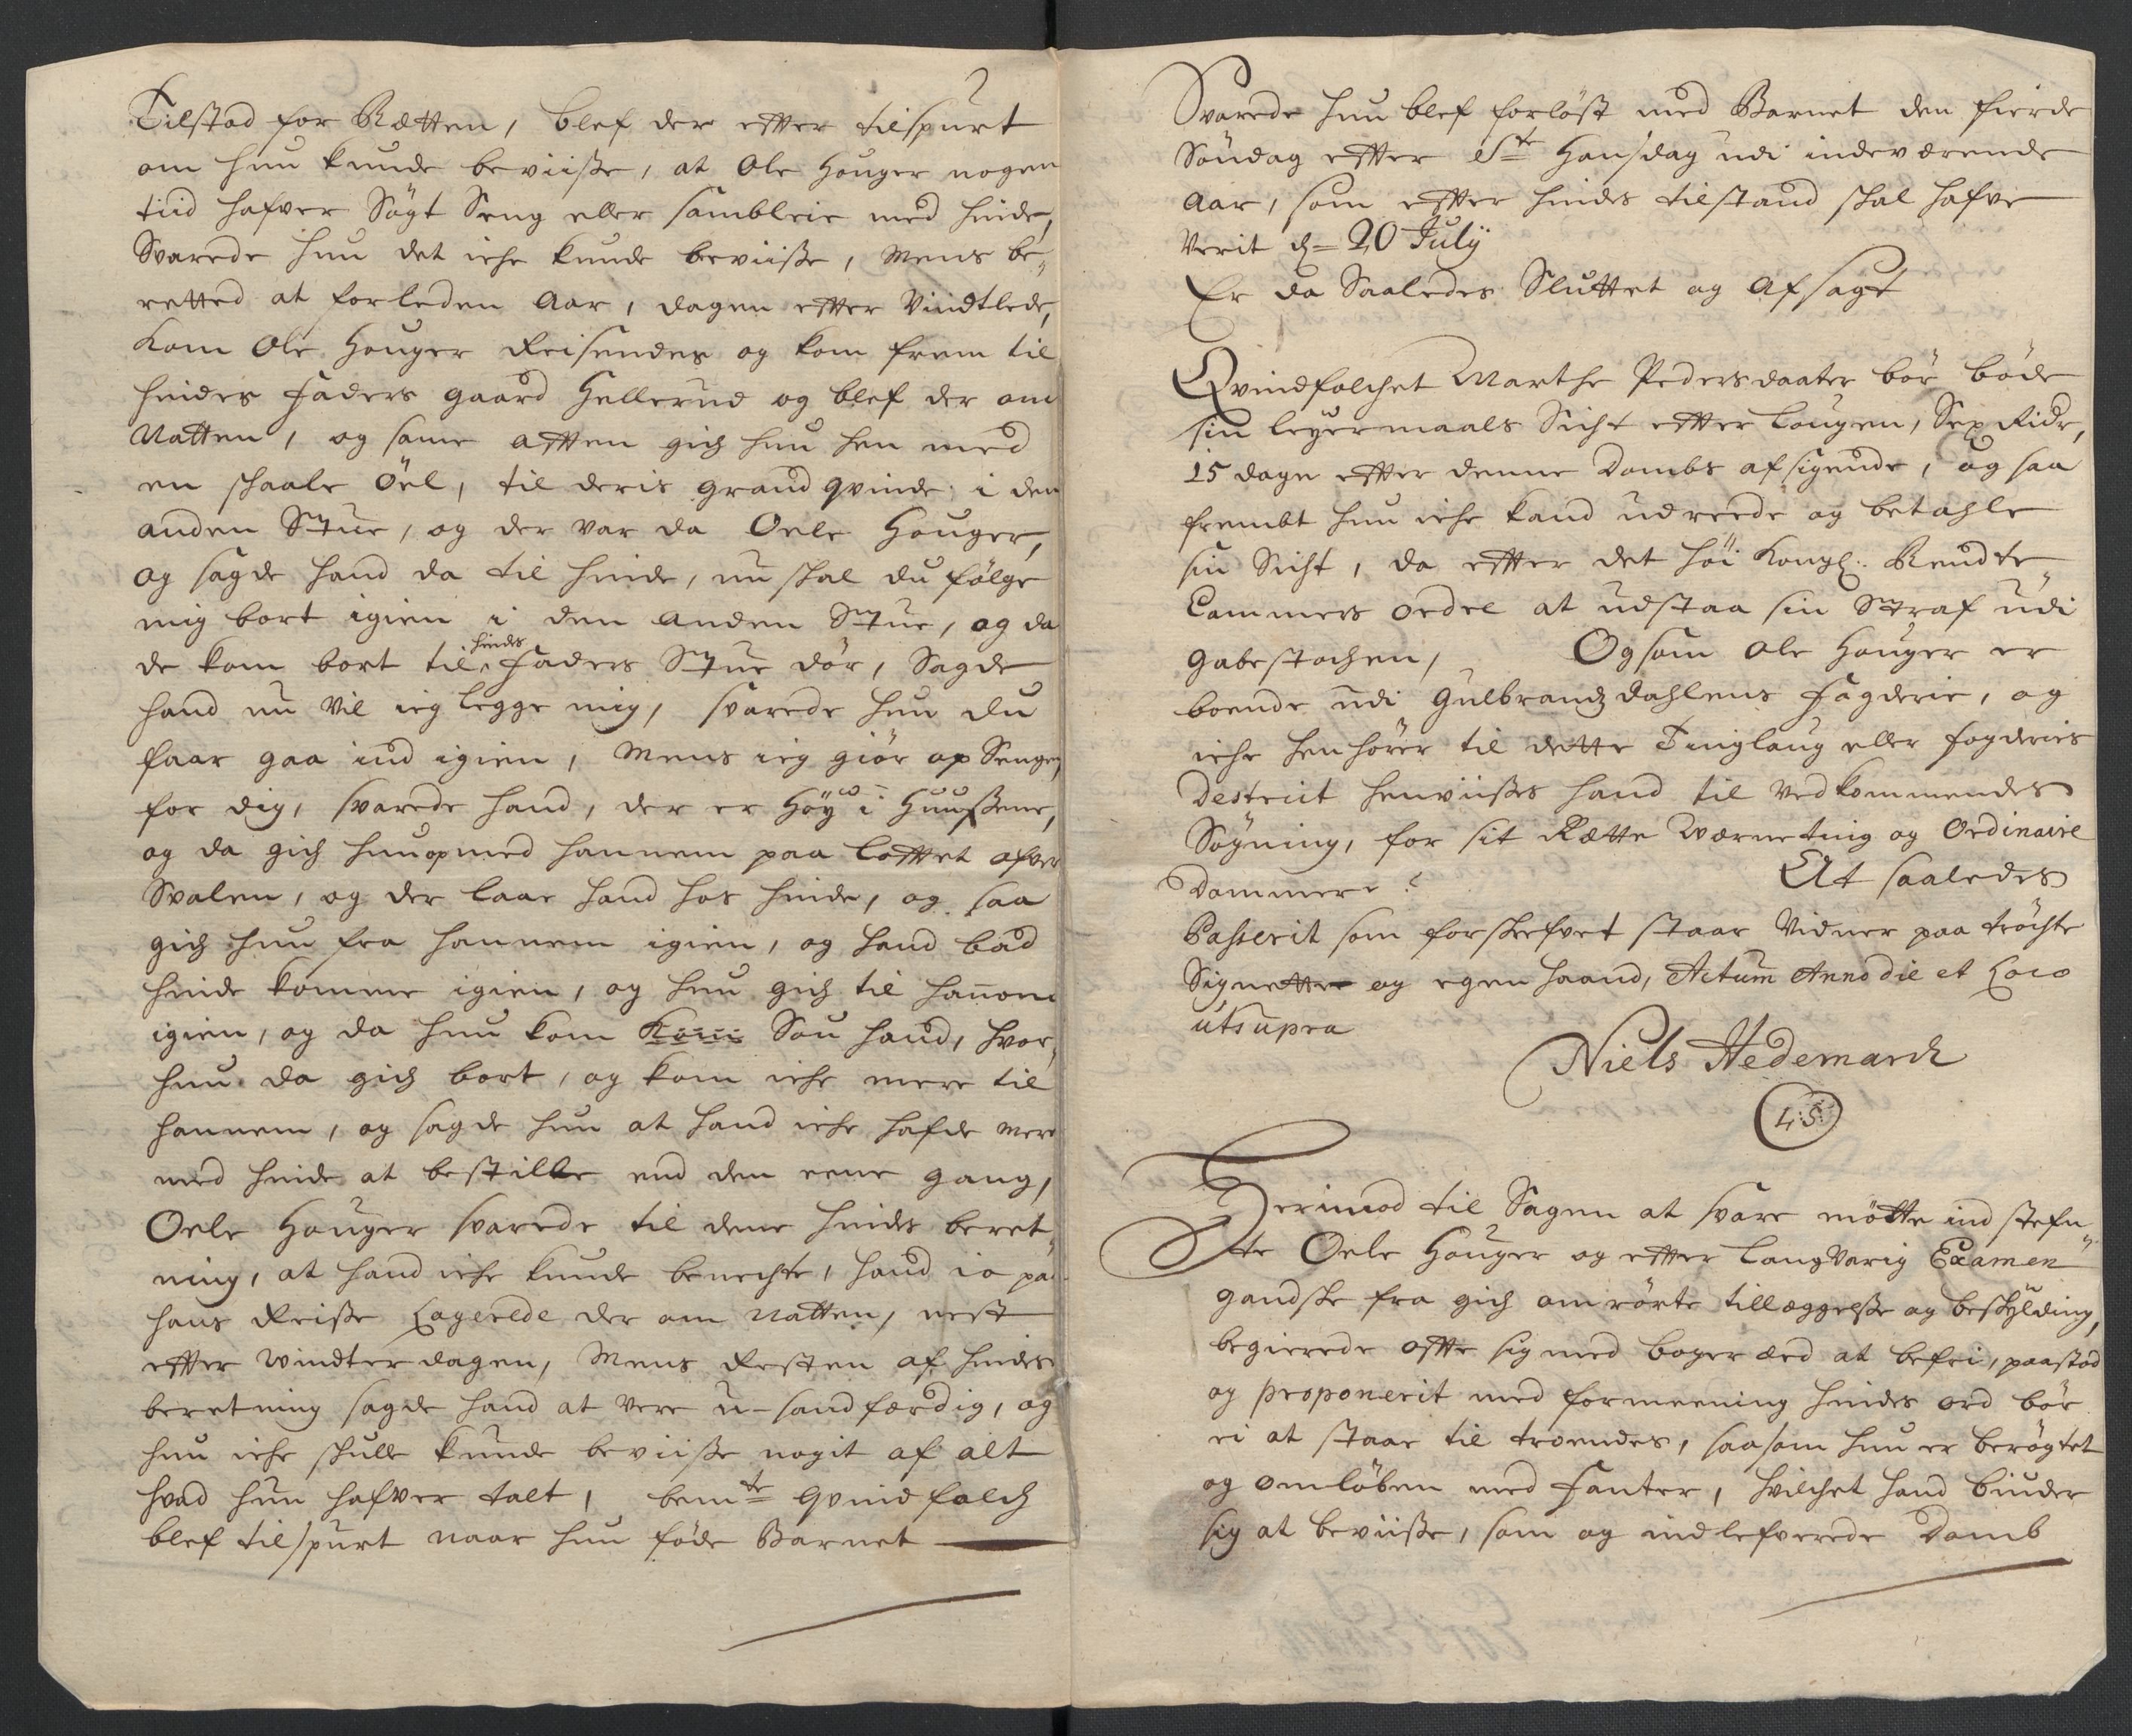 Tilstod for Rætten, blef der effter tilspurt
om hun kunde beviisse, at Ole Houger nogen
tiid hafver Søgt Seng eller sambleie med hinde,
Svarede hun det iche kunde beviisse, Mens be-
retted at forleden Aar, dagen effter Vindtlede,
kom Ole Houger Reisendes og kom frem til
hindes Faders gaard Hellerud og blef der om
Natten, og same afften gich hun hen med
en schaale Öel, til deris grand qvinde i den
anden Stue, og der var da Oele Houger,
og sagde hand da til hinde, nu skal du følge
mig bort igien i den anden Stue, og da
de kom bort til hinds Faders Stue dör, Sagde
hand nu vil ieg legge mig, svarede hun du
faar gaa ind igien, Mens ieg giör op Sengen
for dig, svarede hand, der er Höy i Huussene,
og da gich hun op med hannem paa lofftet ofver
Svalen, og der laae hand hos hinde, og saa
gich hun fra hannem igien, og hand bad
hinde komme igien, og hun gich til hannom
igien, og da hun kom kom Sou hand, hvor,
hun da gich bort, og kom iche mere til
hannem, og sagde hun at hand iche hafde mere
med hinde at bestille end den eene gang,
Oele Houger svarede til dene hindes beret-
ning, at hand iche kunde benechte, hand io paa
hans Reisse Logerede der om Natten, nest
effter Windterdagen, Mens Resten af hindes
beretning sagde hand at vere u-sandfærdig, og
hun iche skulle kunde beviisse nogit af alt
hvad hun hafver talt, bemte qvindfolch
blef tilspurt naar hun föde Barnet
Svarede hun blef forlöst med Barnet den fierde
Söndag effter Ste Hansdag udi indeværende
Aar, som effter hindes tilstand skal hafve
Verit d= 20 Julÿ
Er da Saaledes Sluttet og Afsagt
Qvindfolchet Marthe Pedersdaater bör böde
sin leyermaals Sicht effter lougen, Sex Rdr,
15 dage effter denne Dombs afsigende, og saa
frembt hun iche kand udreede og betahle
sin Sicht, da effter det höi Kongl: Rendte
Cammers ordre at udstaa sin Straf udi
gabestochen, Og som Ole Houger er
boende udi Gulbrandzdahlens fogderie, og
iche henhörer til dette Tinglaug eller fogderies
Destriit henviisses hand til vedkommendes
Søgning, for sit Rætte Værneting og Ordinaire
Dommere. At saaledes
Passerit som forskrefvet staar Vidner paa tröchte
Signetter og egen haand, Actum Anno die et Loco
utsupra
Niels Hedemarch
L.S.
Herimod til Sagen at svare mötte ind stefn-
te Oele Houger og effter langvarig Examen
gandske fra gich omrörte tillæggelsse og beskÿlding,
begierede offte sig med boger æd at befri, paastod
og proponerit med formeening hindes ord bör
ei at staae til troendes, saasom hun er berögtet
og omlöben med Fanter, hvilchet hand biuder
sig at beviisse, som og indlefverede Domb